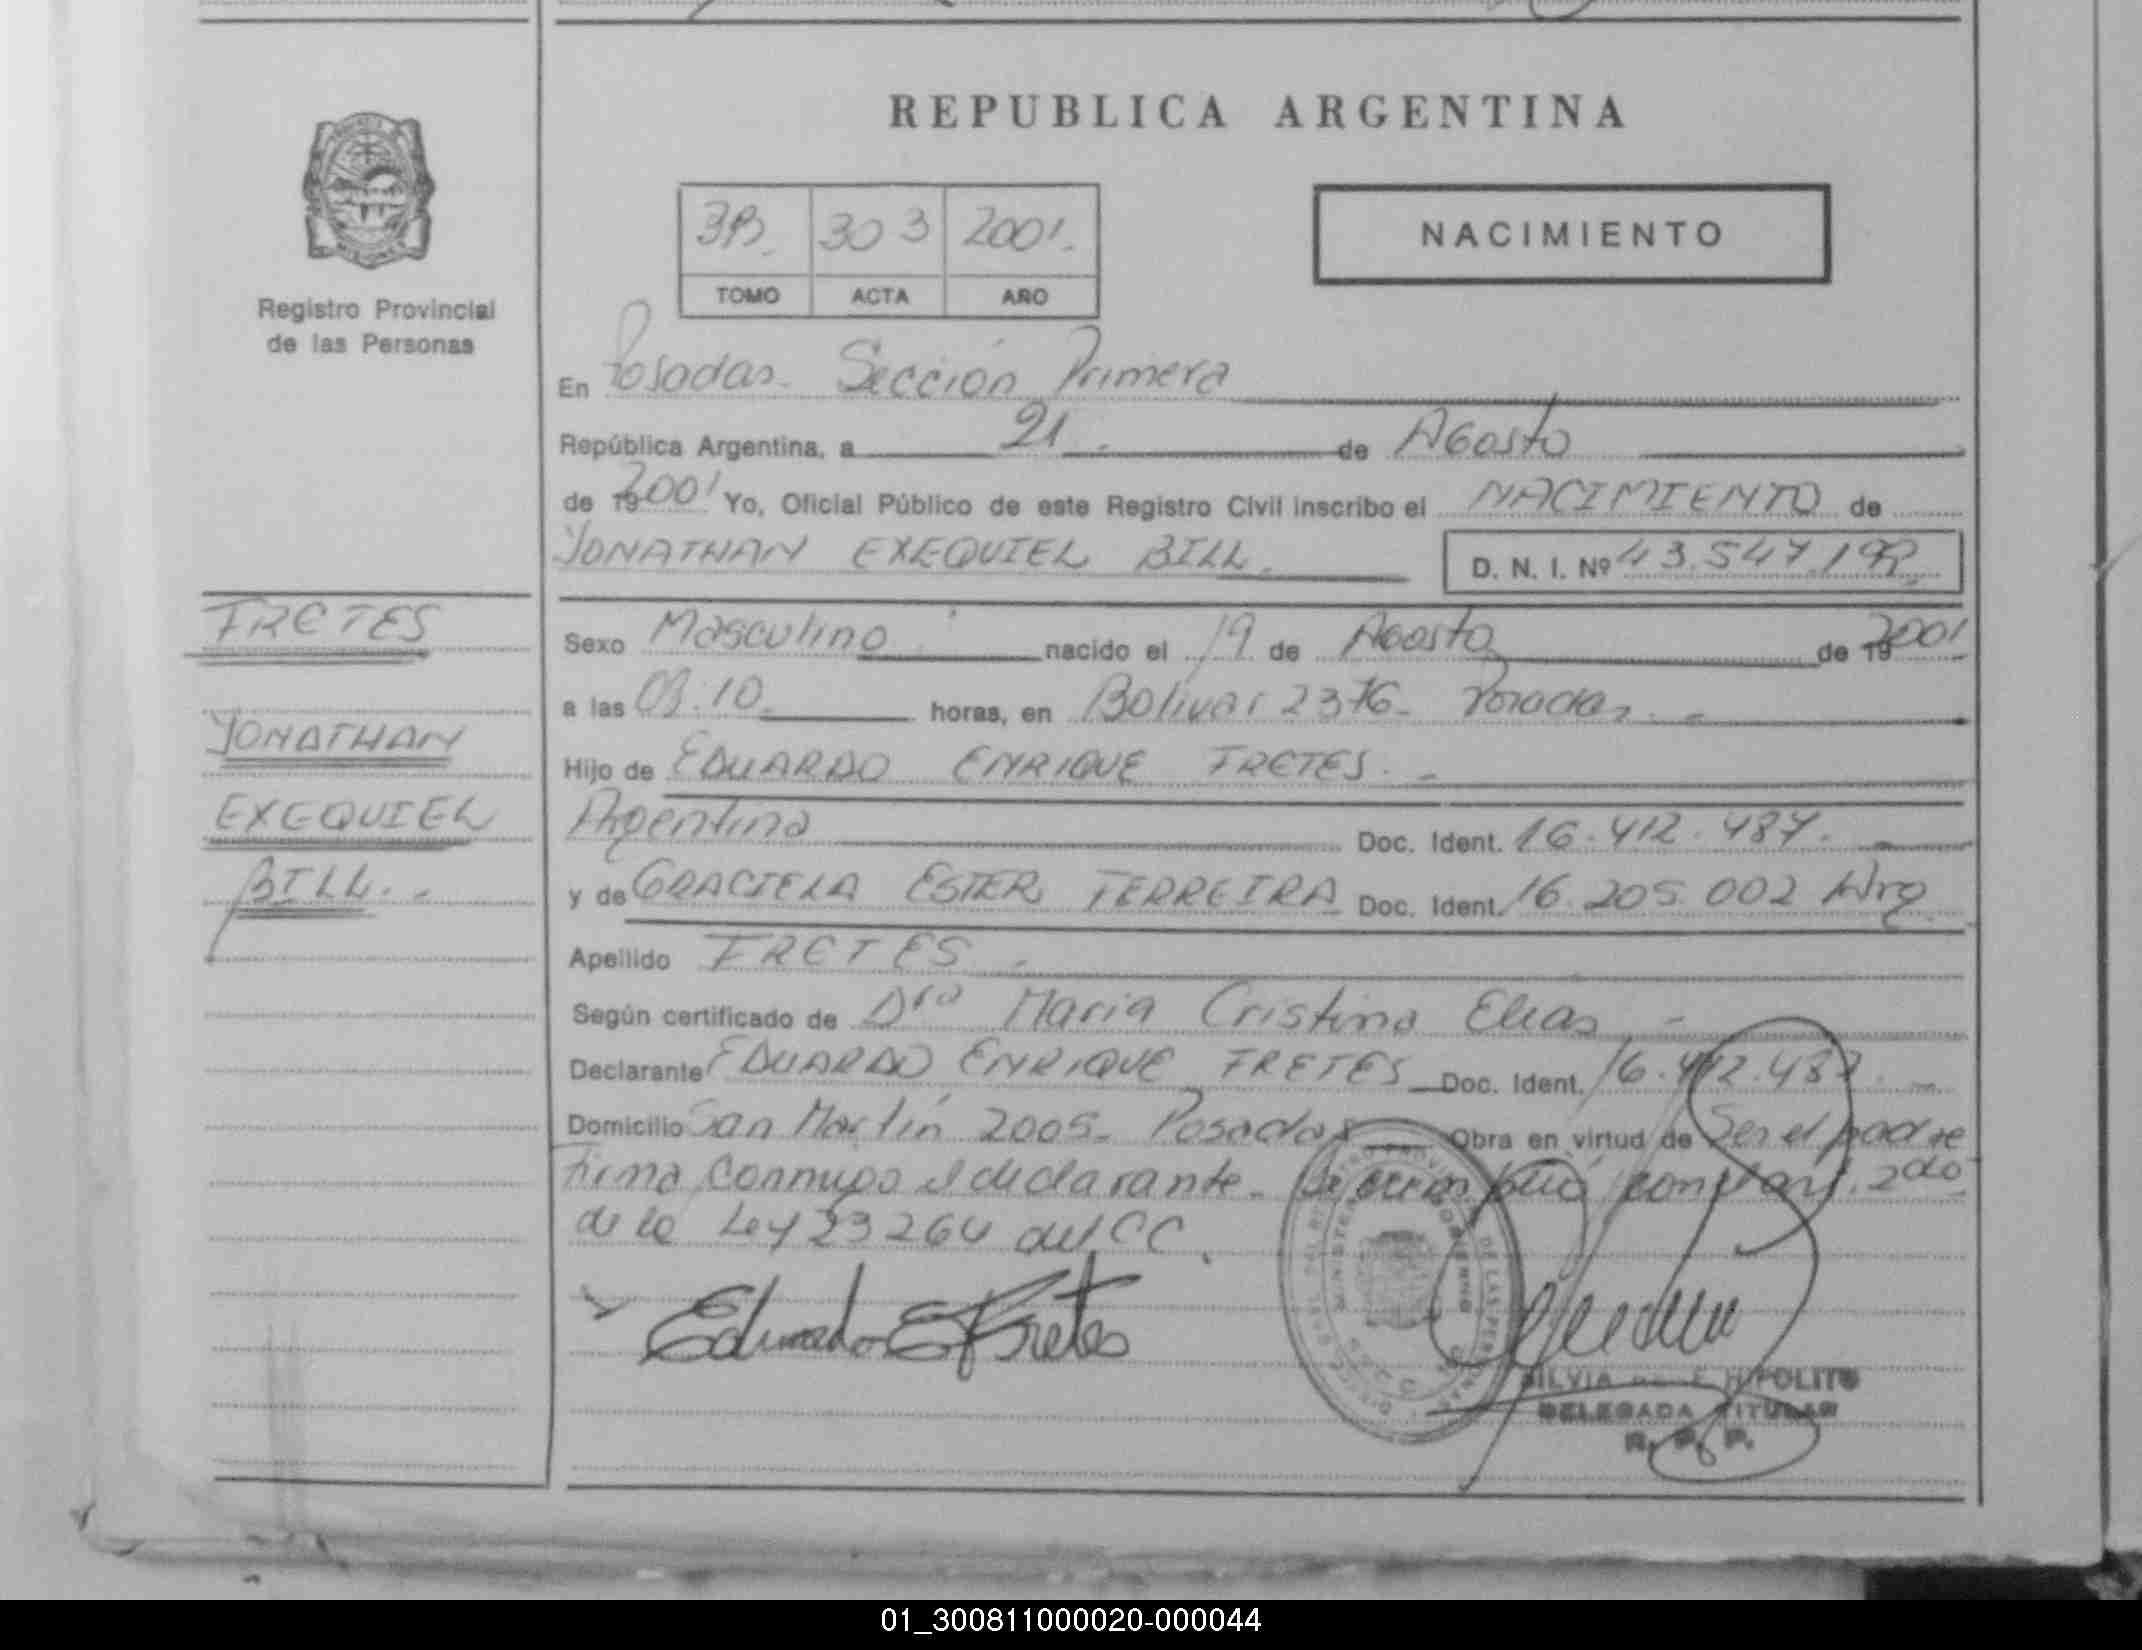 REPUBLICA ARGENTINA
3B. 303 2001.
TOMO ACTA AÑO
NACIMIENTO
Registro Provincial
de las Personas
En Posadas. Sección Primera
República Argentina, a 21 de Agosto
de 19 2001 Yo, Oficial Público de este Registro Civil inscribo el NACIMIENTO de
YONATHAN EXEQUIEL BILL. D. N. I. Nº 43.547.192
FRETES
YONATHAN
EXEQUIEL
BILL. -
Sexo Masculino nacido el 19 de Agosto de 19 2001
a las 03:10 horas, en Bolivar 2376 - Posadas. -
Hijo de EDUARDO ENRIQUE FRETES. -
Argentina Doc. Ident. 16.412.487. -
y de GRACIELA ESTER FERREIRA Doc. Ident. 16.205.002 Arg.
Apellido FRETES -
Según certificado de Dra Maria Cristina Elias -
Declarante EDUARDO ENRIQUE FRETES Doc. Ident. 16.412.487. -
Domicilio San Martín 2005 - Posadas Obra en virtud de Ser el padre
Firma conmigo el declarante. Se cumplió con el art. 2do
de la Ley 23264 del CC.
Eduardo E Fretes
SILVIA HIPOLITO
DELEGADA TITULAR
R. P. P.
01_300811000020-000044